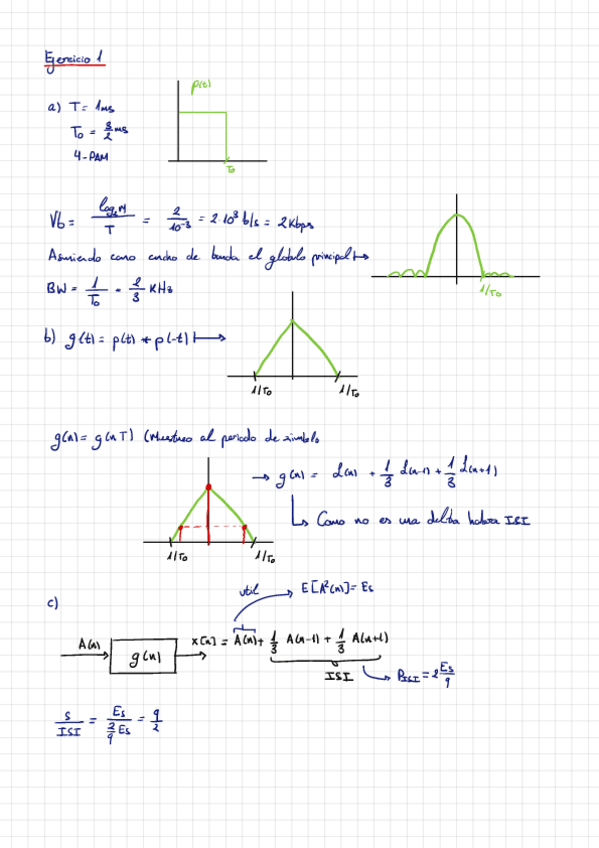 Ejercicio 1
p(t)
a) T = 1ms
T0 = 3/2 ms
4-PAM
T0
Vb = log2 M / T = 2 / 10^-3 = 2 10^3 b/s = 2Kbps
Asumiendo como ancho de banda el globulo principal ↦
BW = 1/T0 = 2/3 KHz
1/T0
b) g(t) = p(t) * p(-t) ↦
1/T0 1/T0
g(n) = g(nT) (Muestreo al periodo de simbolo
→ g(n) = δ(n) + 1/3 δ(n-1) + 1/3 δ(n+1)
↳ Como no es una delta habra ISI
1/T0 1/T0
c)
util → E[A²(n)] = Es
A(n) g(n) x[n] = A(n) + 1/3 A(n-1) + 1/3 A(n+1)
ISI → PISI = 2 Es/9
S/ISI = Es / (2/9 Es) = 9/2